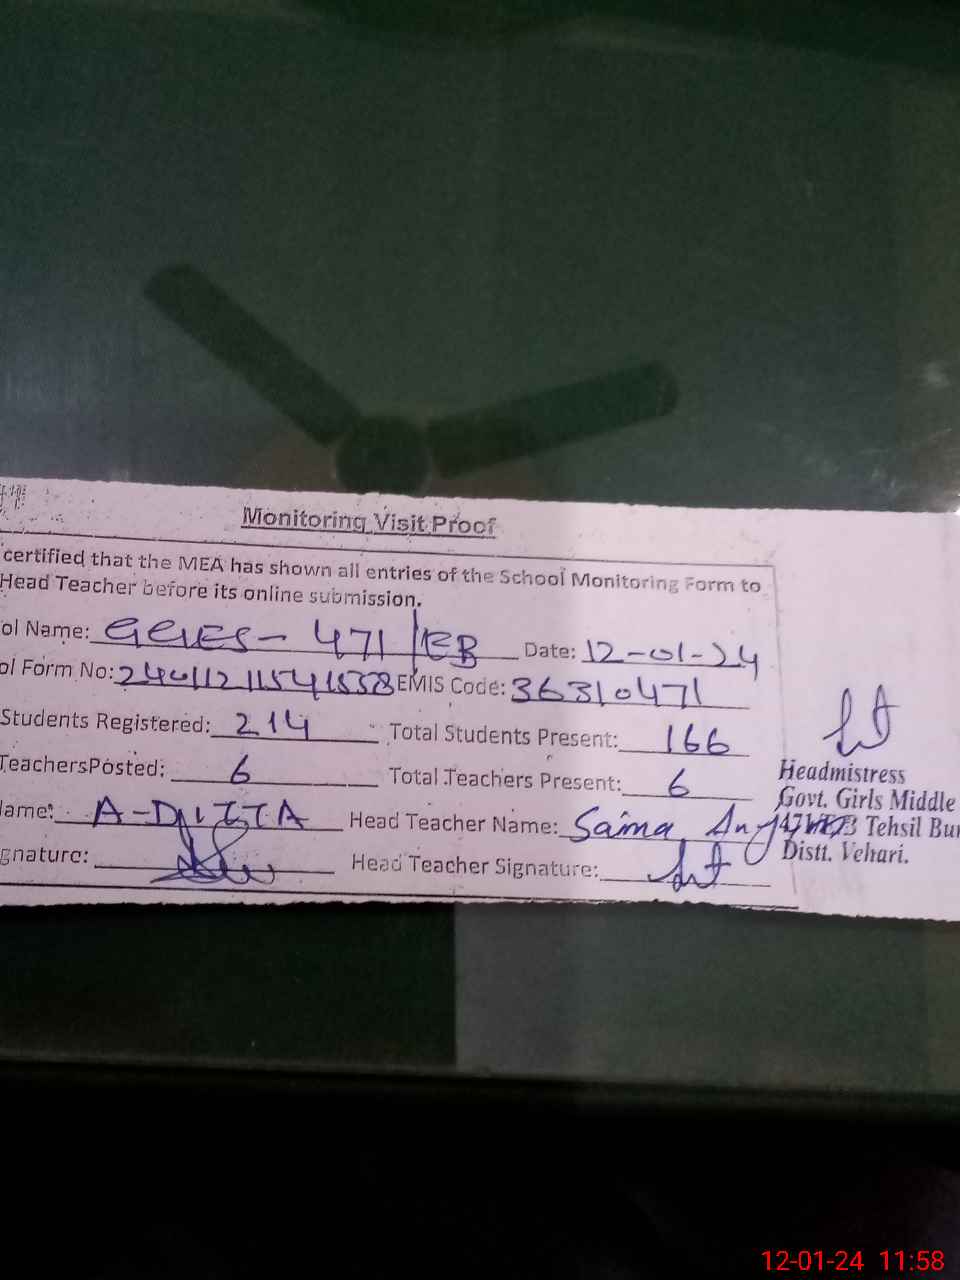 Monitoring Visit Proof
certified that the MEA has shown all entries of the School Monitoring Form to
Head Teacher before its online submission.
ol Name: GGES- 471/EB Date: 12-01-24
ol Form No: 24011211541558 EMIS Code: 36310471
Students Registered: 214 Total Students Present: 166
TeachersPosted: 6 Total Teachers Present: 6
ame: A-DITTA Head Teacher Name: Saima
gnature: Head Teacher Signature:
Headmistress
Govt. Girls Middle
471/EB Tehsil Bur
Distt. Vehari.
12-01-24 11:58